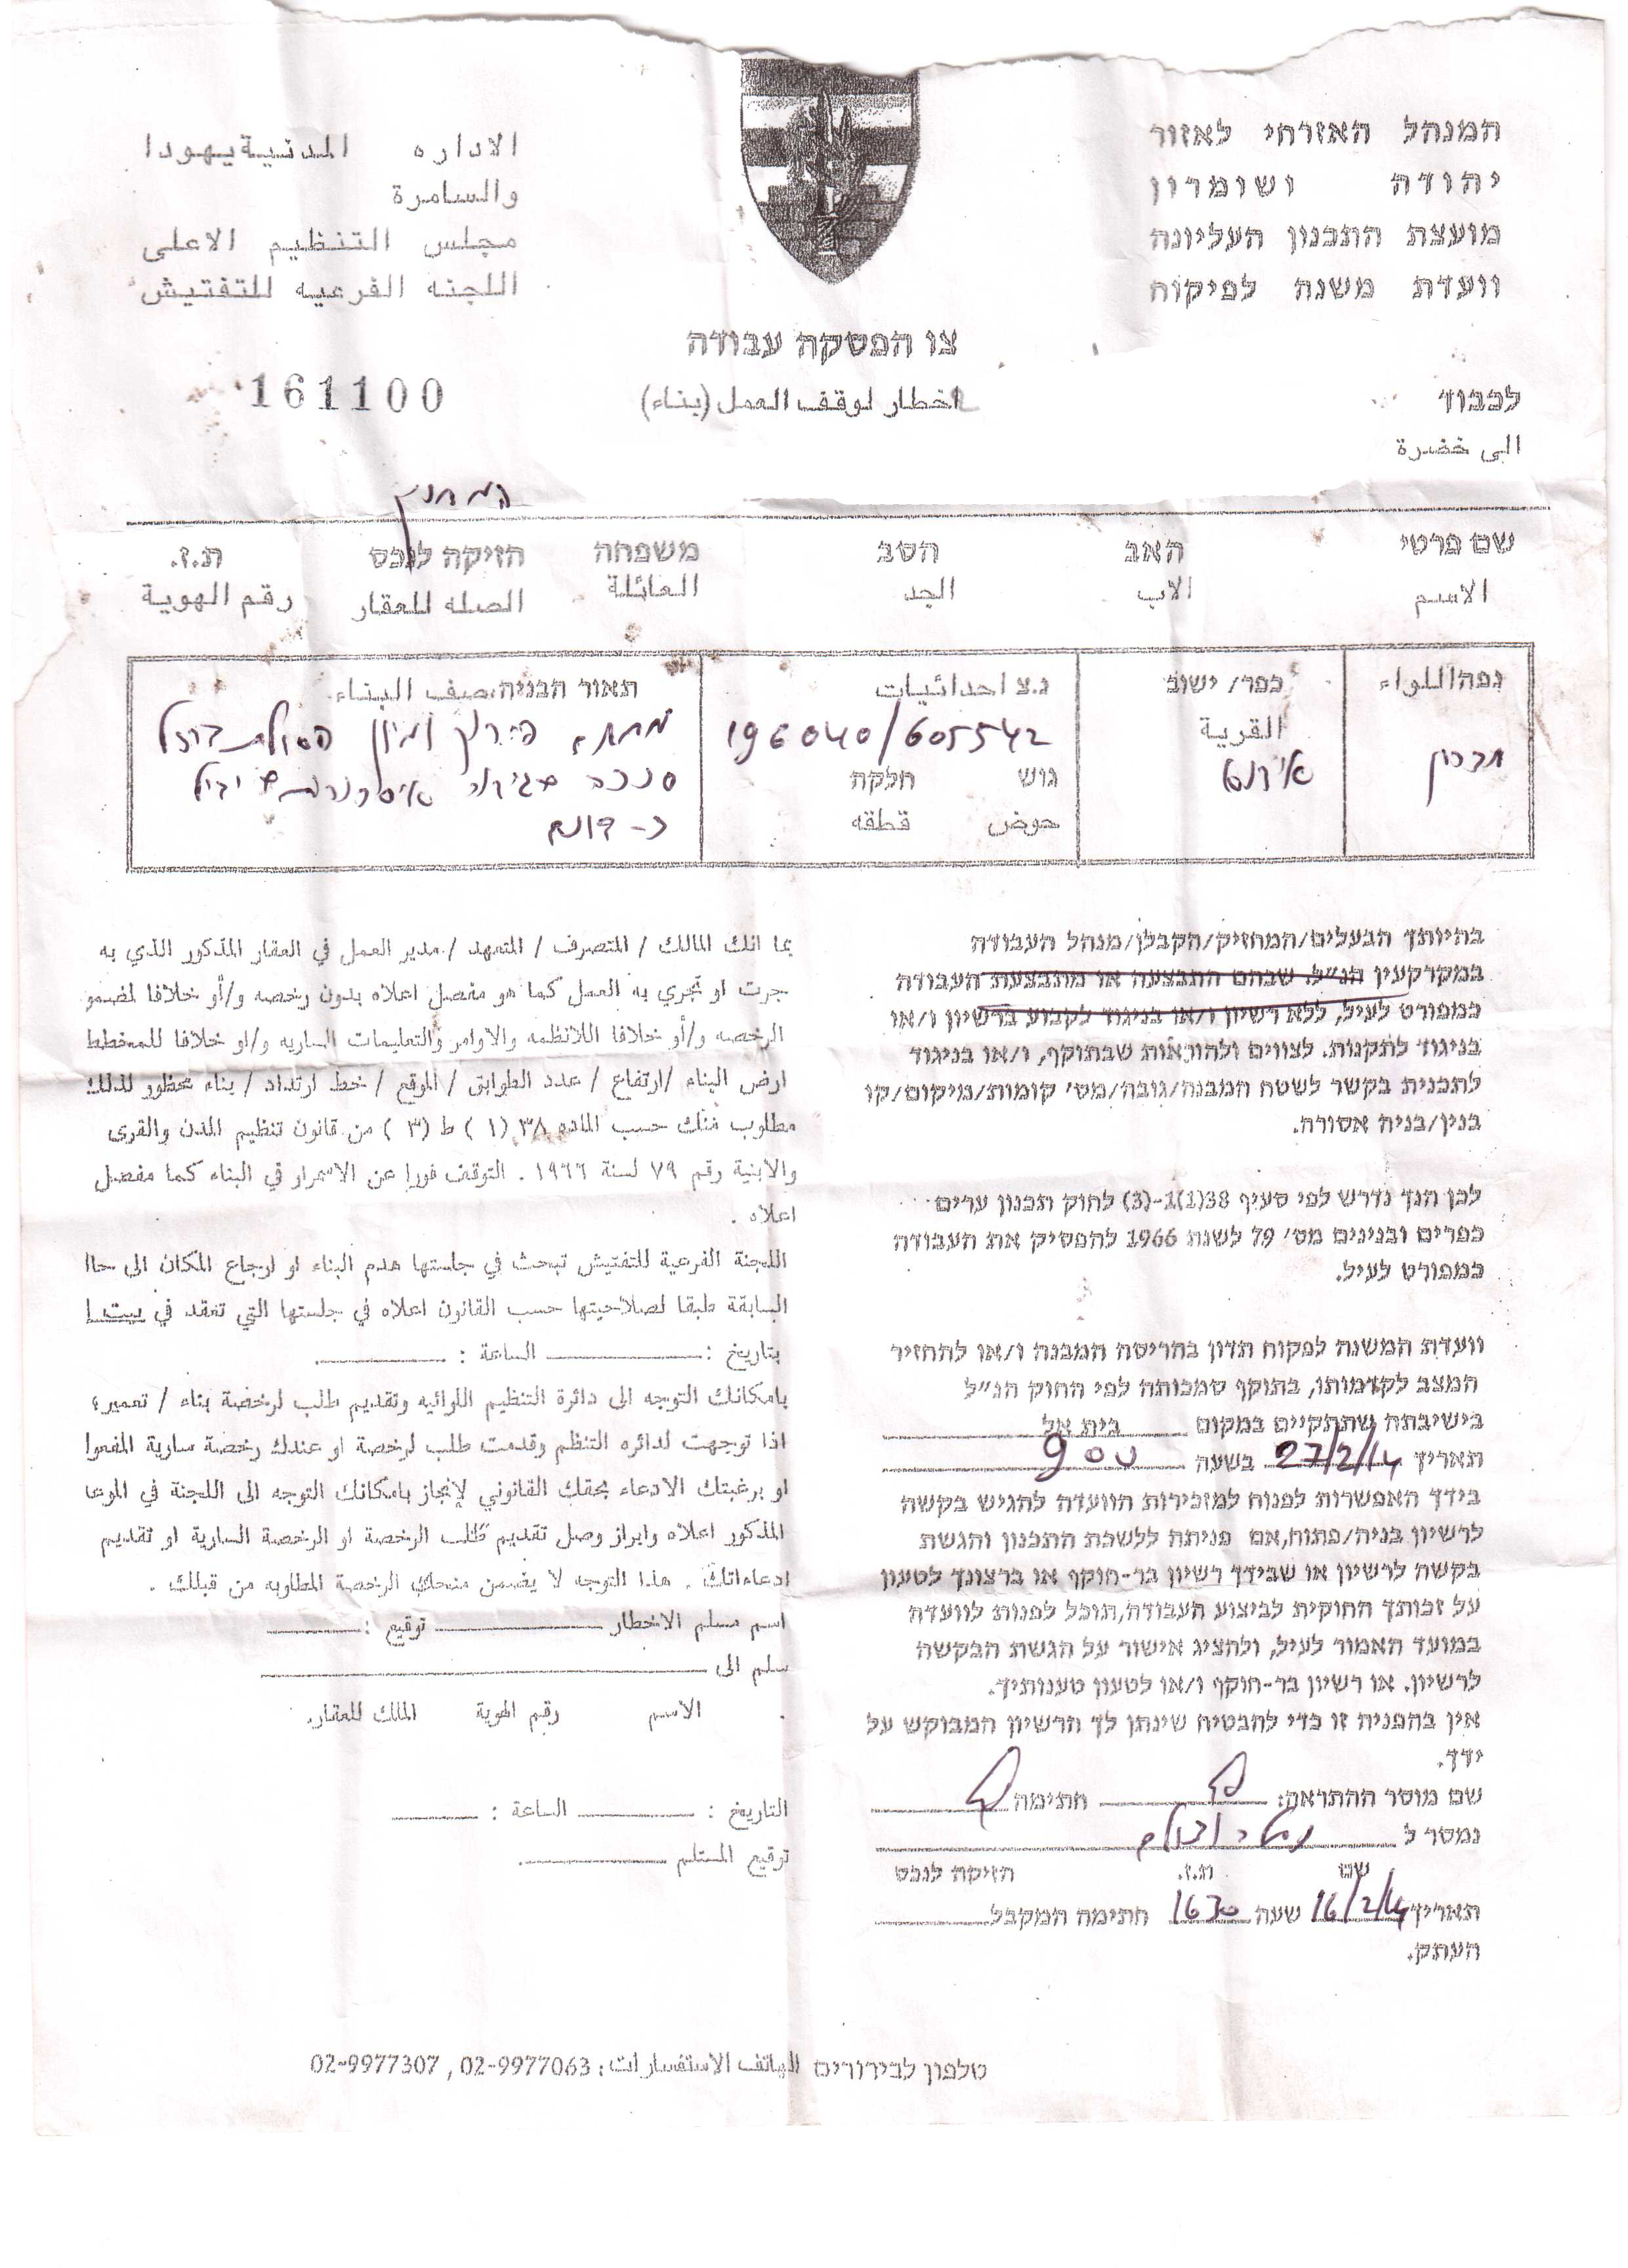 המנהל האזרחי לאזור
יהודה ושומרון
מועצת התכנון העליונה
וועדת משנה לפיקוח
الاداره المدنية يهودا
والسامرة
مجلس التنظيم الاعلى
اللجنه الفرعيه للتفتيش
צו הפסקה עבודה
اخطار لوقف العمل (بناء)
161100
לכבוד
الى خضرة
המחזיק
שם פרטי האב הסב משפחה חזיקה לנכס ת.ז.
الاسم الاب الجد العائلة الصله للعقار رقم الهوية
נפה اللواء
חברון
כפר/ ישוב
القرية
אידנא
נ.צ احداثيات
196040/605542
גוש חלקה
حوض قطقه
תאור הבניה صيف البناء
מתחם פירוק ומיון פסולת ברזל
סככה
כ- דונם
בהיותך הבעלים/המחזיק/הקבלן/מנהל העבודה
במקרקעין הנ״ל. שבהם התבצעה או מתבצעת העבודה
כמפורט לעיל, ללא רשיון ו/או בניגוד לקבוע ברשיון ו/או
בניגוד לתקנות. לצווים ולהוראות שבתוקף, ו/או בניגוד
לתכנית בקשר לשטח המבנה/גובה/מס׳ קומות/מיקום/קו
בנין/בניה אסורה.
לכן הנך נדרש לפי סעיף 38(1)1-(3) לחוק תכנון ערים
כפרים ובנינים מס׳ 79 לשנת 1966 להפסיק את העבודה
כמפורט לעיל.
וועדת המשנה לפקוח תדון בהריסה המבנה ו/או להחזיר
המצב לקדמותו, בתוקף סמכותה לפי החוק הנ״ל
בישיבתה שתתקיים במקום בית אל
תאריך 27/2/14 בשעה 900
בידך האפשרות לפנות למזכירות הוועדה להגיש בקשה
לרשיון בניה/פתוח,אם פניתה ללשכת התכנון והגשת
בקשה לרשיון או שבידך רשיון בר-חוקף או ברצונך לטעון
על זכותך החוקית לביצוע העבודה,תוכל לפנות לוועדה
במועד האמור לעיל, ולהציג אישור על הגשת הבקשה
לרשיון. או רשיון בר-חוקף ו/או לטעון טענותיך.
אין בהפניה זו כדי להבטיח שינתן לך הרשיון המבוקש על
ידך.
שם מוסר ההתראה: חתימה
נמסר ל
שם ת.ז. הזיקה לנכס
תאריך 16/2/14 שעה 1630 חתימה המקבל
העתק.
بما انك المالك / المتصرف / المتعهد / مدير العمل في العقار المذكور الذي به
جرت او تجري به العمل كما هو مفصل اعلاه بدون رخصه و/أو خلافا لمضمو
الرخصه و/أو خلافا اللانظمه والاوامر والتعليمات الساريه و/او خلافا للمخطط
ارض البناء /ارتفاع / عدد الطوابق / الموقع / خط ارتداد / بناء محظور لذلك
مطلوب منك حسب الماده ٣٨ (١) ط (٣) من قانون تنظيم المدن والقرى
والابنية رقم ٧٩ لسنة ١٩٦٦ . التوقف فورا عن الاستمرار في البناء كما مفصل
اعلاه .
اللجنة الفرعية للتفتيش تبحث في جلستها هدم البناء او ارجاع المكان الى حاا
السابقة طبقا لصلاحيتها حسب القانون اعلاه في جلستها التي تعقد في بيت ا
بتاريخ : الساعة : .
بامكانك التوجه الى دائرة التنظيم اللوائيه وتقديم طلب لرخصة بناء / تعمير،
اذا توجهت لدائره التنظم وقدمت طلب لرخصة او عندك رخصة سارية المفعوا
او برغبتك الادعاء بحقك القانوني لإنجاز بامكانك التوجه الى اللجنة في الموعا
المذكور اعلاه وابراز وصل تقديم طلب الرخصة او الرخصة السارية او تقديم
ادعاءاتك . هذا التوجه لا يضمن منحك الرخصة المطلوبه من قبلك .
اسم مسلم الاخطار توقيع :
سلم الى
الاسم رقم الهوية المالك للعقار.
التاريخ : الساعة :
توقيع المستلم .
טלפון לבירורים الهاتف الاستفسارات : 02-9977063 , 02-9977307